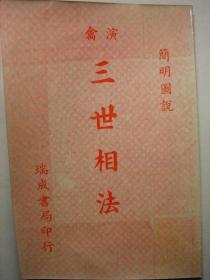 簡明圖說
演禽
三世相法
瑞成書局印行